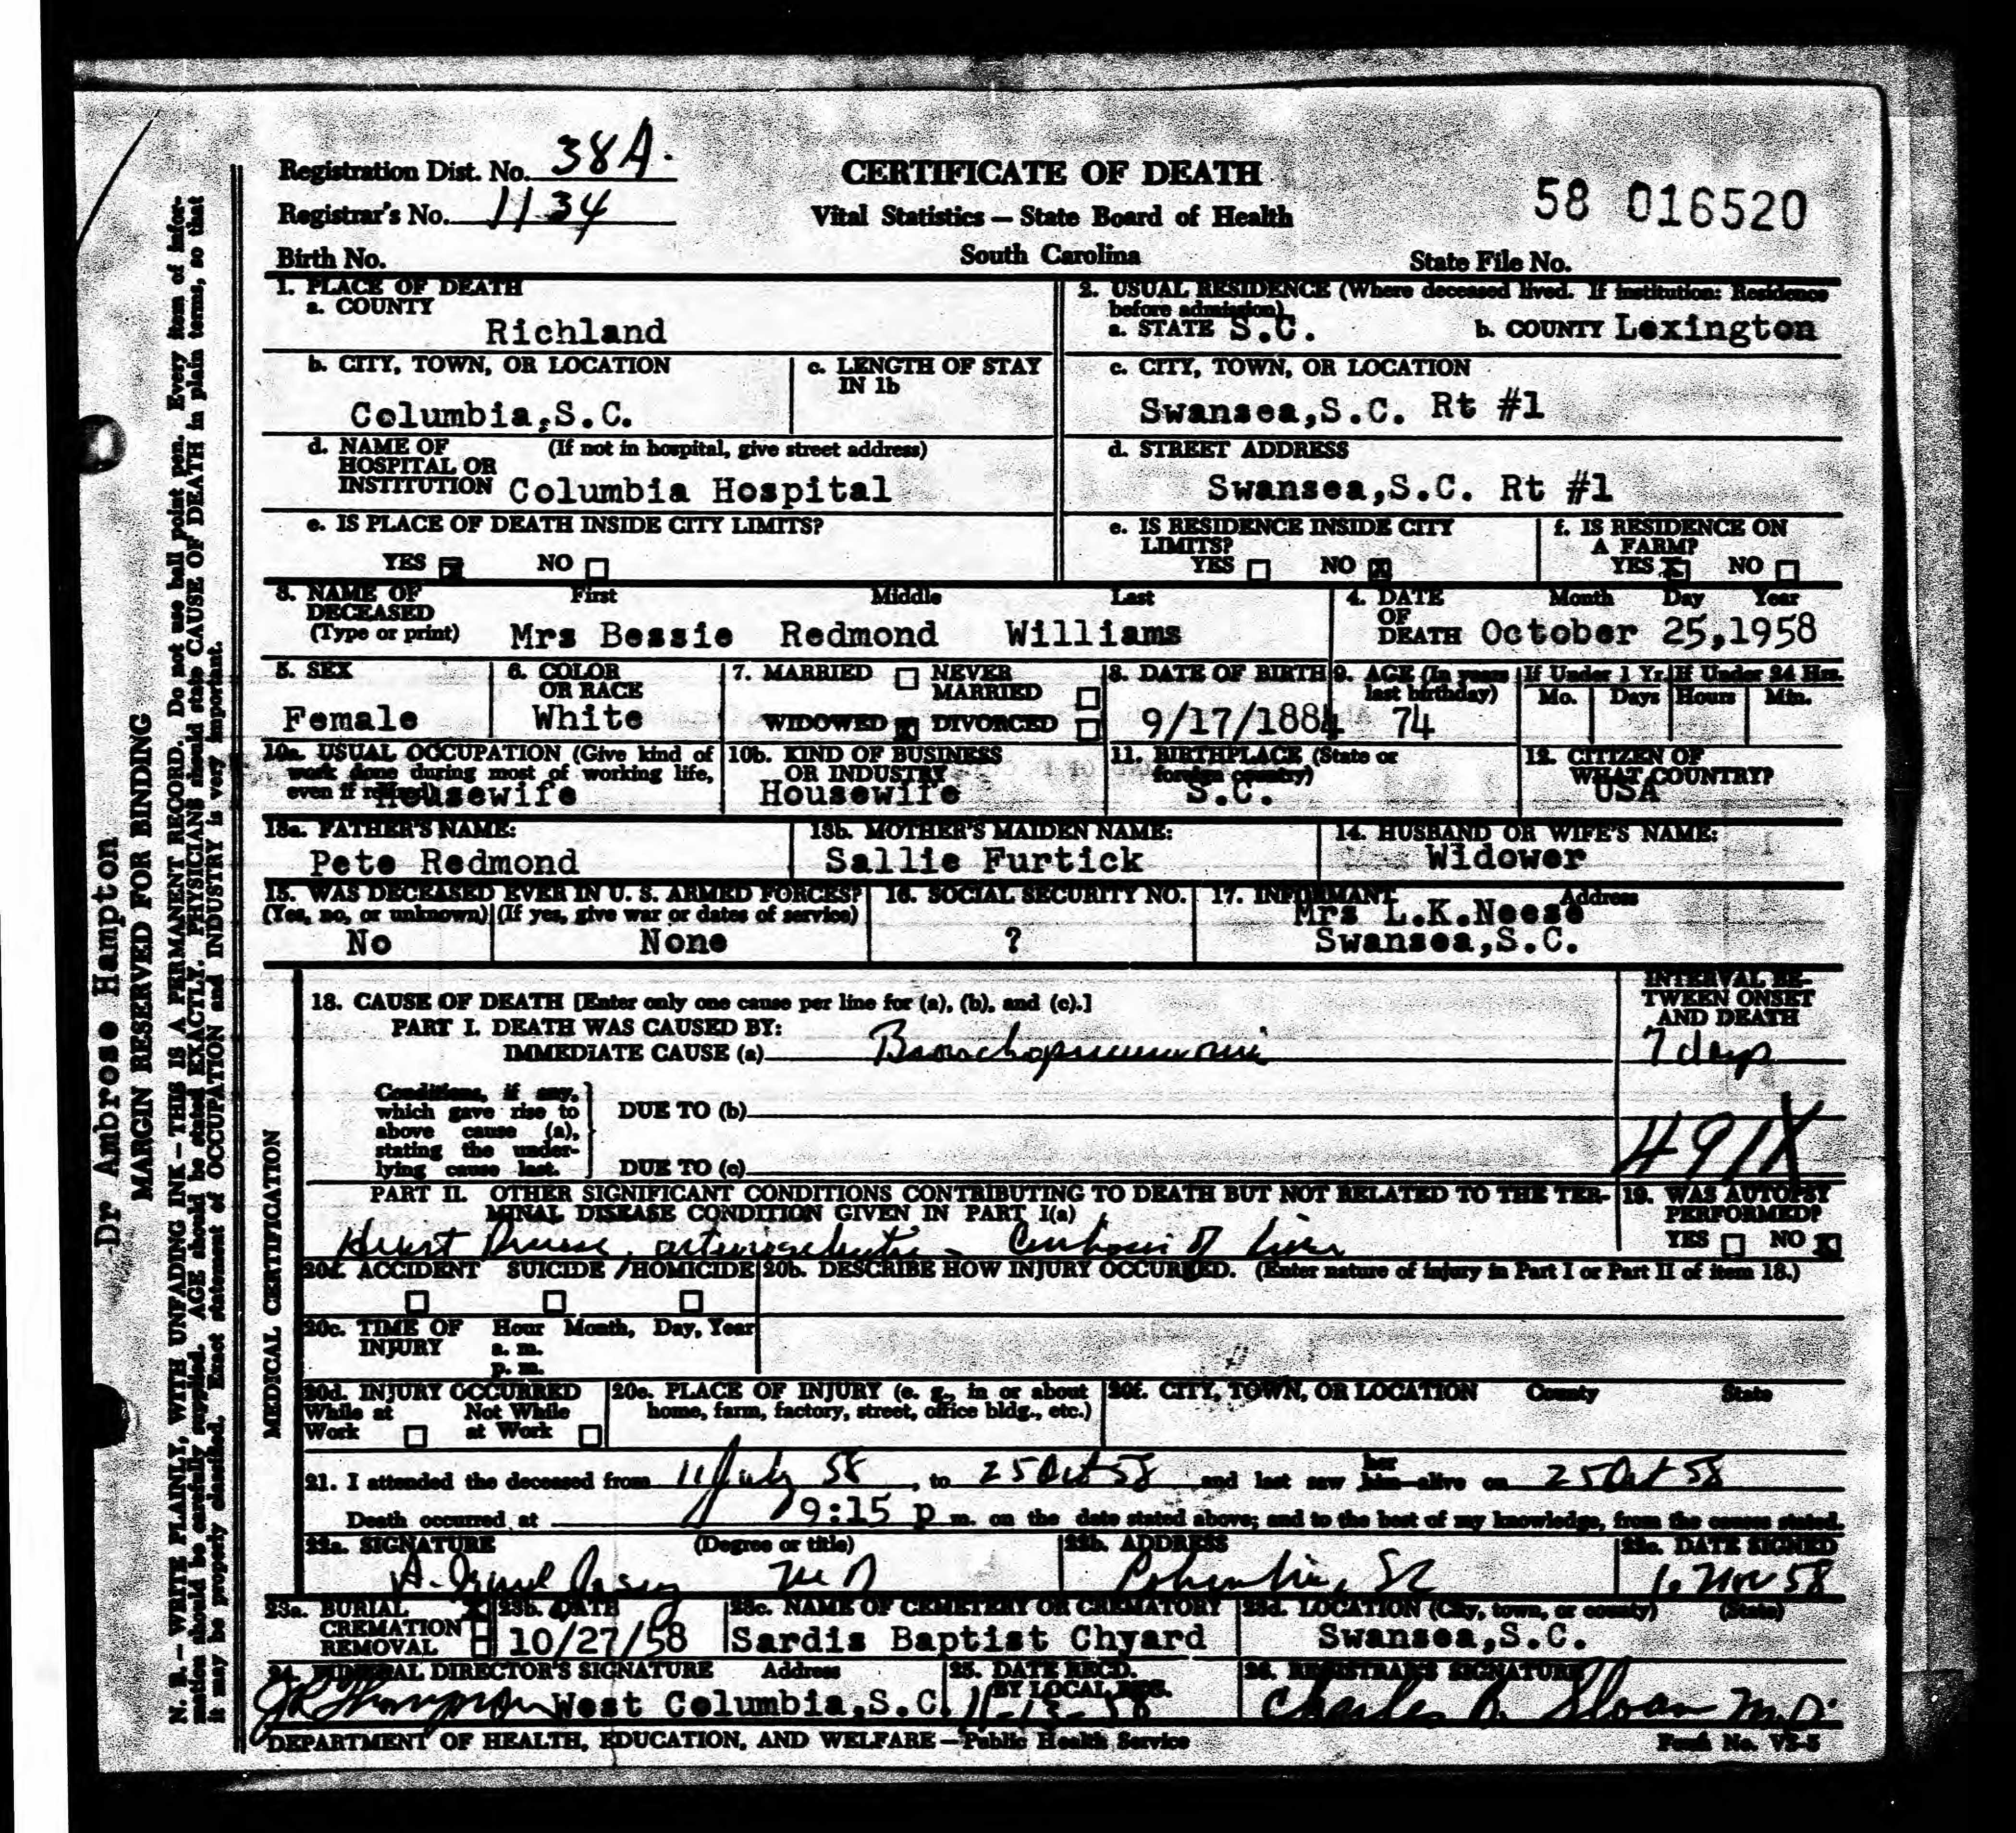 Registration Dist. No. 38A.
Registrar's No. 1134
Birth No.
CERTIFICATE OF DEATH
Vital Statistics — State Board of Health
South Carolina
58 016520
State File No.
1. PLACE OF DEATH
a. COUNTY
Richland
2. USUAL RESIDENCE (Where deceased lived. If institution: Residence before admission)
a. STATE S.C. b. COUNTY Lexington
b. CITY, TOWN, OR LOCATION
Columbia,S.C.
c. LENGTH OF STAY IN 1b
c. CITY, TOWN, OR LOCATION
Swansea,S.C. Rt #1
d. NAME OF HOSPITAL OR INSTITUTION (If not in hospital, give street address)
Columbia Hospital
d. STREET ADDRESS
Swansea,S.C. Rt #1
e. IS PLACE OF DEATH INSIDE CITY LIMITS?
YES NO
e. IS RESIDENCE INSIDE CITY LIMITS?
YES NO
f. IS RESIDENCE ON A FARM?
YES NO
3. NAME OF DECEASED (Type or print) First Middle Last
Mrs Bessie Redmond Williams
4. DATE OF DEATH Month Day Year
October 25,1958
5. SEX
Female
6. COLOR OR RACE
White
7. MARRIED NEVER MARRIED
WIDOWED DIVORCED
8. DATE OF BIRTH
9/17/1884
9. AGE (In years last birthday)
74
If Under 1 Yr. If Under 24 Hrs.
Mo. Days Hours Min.
10a. USUAL OCCUPATION (Give kind of work done during most of working life, even if retired)
Housewife
10b. KIND OF BUSINESS OR INDUSTRY
Housewife
11. BIRTHPLACE (State or foreign country)
S.C.
12. CITIZEN OF WHAT COUNTRY?
USA
13a. FATHER'S NAME:
Pete Redmond
13b. MOTHER'S MAIDEN NAME:
Sallie Furtick
14. HUSBAND OR WIFE'S NAME:
Widower
15. WAS DECEASED EVER IN U. S. ARMED FORCES?
(Yes, no, or unknown) (If yes, give war or dates of service)
No None
16. SOCIAL SECURITY NO.
?
17. INFORMANT Address
Mrs L.K.Neese
Swansea,S.C.
MEDICAL CERTIFICATION
18. CAUSE OF DEATH [Enter only one cause per line for (a), (b), and (c).]
PART I. DEATH WAS CAUSED BY:
IMMEDIATE CAUSE (a) Bronchopneumonia
INTERVAL BETWEEN ONSET AND DEATH
7 days
Conditions, if any, which gave rise to above cause (a), stating the underlying cause last.
DUE TO (b)
DUE TO (c)
491X
PART II. OTHER SIGNIFICANT CONDITIONS CONTRIBUTING TO DEATH BUT NOT RELATED TO THE TERMINAL DISEASE CONDITION GIVEN IN PART I(a)
Heart Disease, arteriosclerotic - Cirrhosis of liver
19. WAS AUTOPSY PERFORMED?
YES NO
20a. ACCIDENT SUICIDE HOMICIDE
20b. DESCRIBE HOW INJURY OCCURRED. (Enter nature of injury in Part I or Part II of item 18.)
20c. TIME OF INJURY Hour Month, Day, Year
a. m.
p. m.
20d. INJURY OCCURRED
While at Work Not While at Work
20e. PLACE OF INJURY (e. g., in or about home, farm, factory, street, office bldg., etc.)
20f. CITY, TOWN, OR LOCATION County State
21. I attended the deceased from 11 July 58, to 25 Oct 58 and last saw her him alive on 25 Oct 58
Death occurred at 9:15 p m. on the date stated above; and to the best of my knowledge, from the causes stated.
22a. SIGNATURE (Degree or title)
MD
22b. ADDRESS
Columbia, SC
22c. DATE SIGNED
Nov 58
23a. BURIAL
CREMATION
REMOVAL
23b. DATE
10/27/58
23c. NAME OF CEMETERY OR CREMATORY
Sardis Baptist Chyard
23d. LOCATION (City, town, or county) (State)
Swansea,S.C.
24. FUNERAL DIRECTOR'S SIGNATURE Address
JR Thompson West Columbia,S.C.
25. DATE RECD. BY LOCAL REG.
11-13-58
26. REGISTRAR'S SIGNATURE
Charles Sloan M.D.
DEPARTMENT OF HEALTH, EDUCATION, AND WELFARE — Public Health Service
Form No. VS-5
Dr Ambrose Hampton
MARGIN RESERVED FOR BINDING
N. B. — WRITE PLAINLY, WITH UNFADING INK — THIS IS A PERMANENT RECORD. Do not use ball point pen. Every item of infor-
mation should be carefully supplied. AGE should be stated EXACTLY. PHYSICIANS should state CAUSE OF DEATH in plain terms, so that
it may be properly classified. Exact statement of OCCUPATION and INDUSTRY is very important.